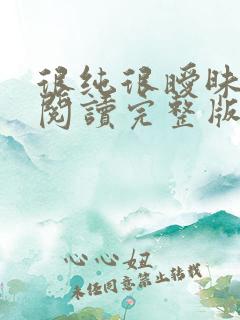 很纯很暧昧
閱讀完整版
心心妞
未经同意禁止转载